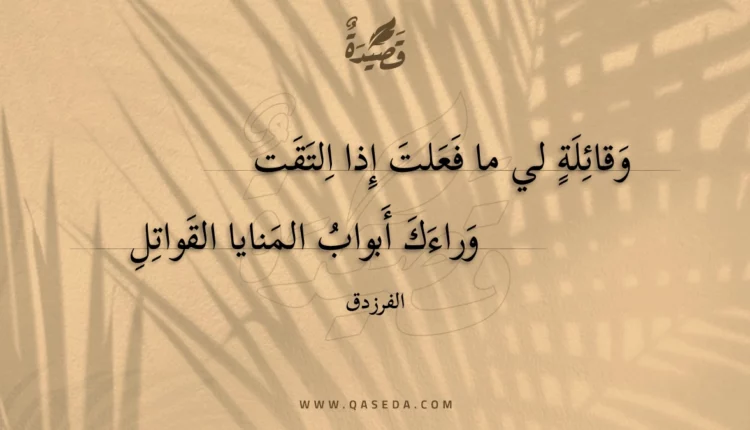 قَصِيْدَةٌ
وَقائِلَةٍ لي ما فَعَلتَ إِذا اِلتَقَت
وَراءَكَ أَبوابُ المَنايا القَواتِلِ
الفرزدق
WWW.QASEDA.COM